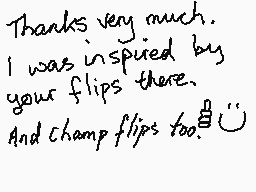 Thanks very much.
I was inspired by
your flips there.
And champ flips too.